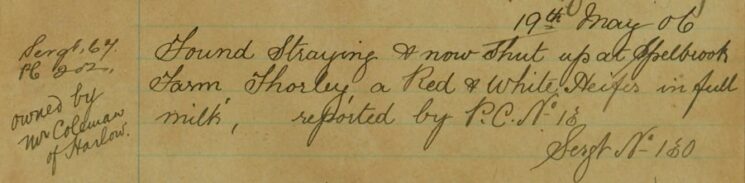 19th May 06
Sergt, 67.
PC 202,
owned by
Mr Coleman
of Harlow.
Found Straying & now Shut up at Spelbrook
Farm Thorley, a Red & White Heifer in full
milk, reported by P.C. No 18
Sergt No 180